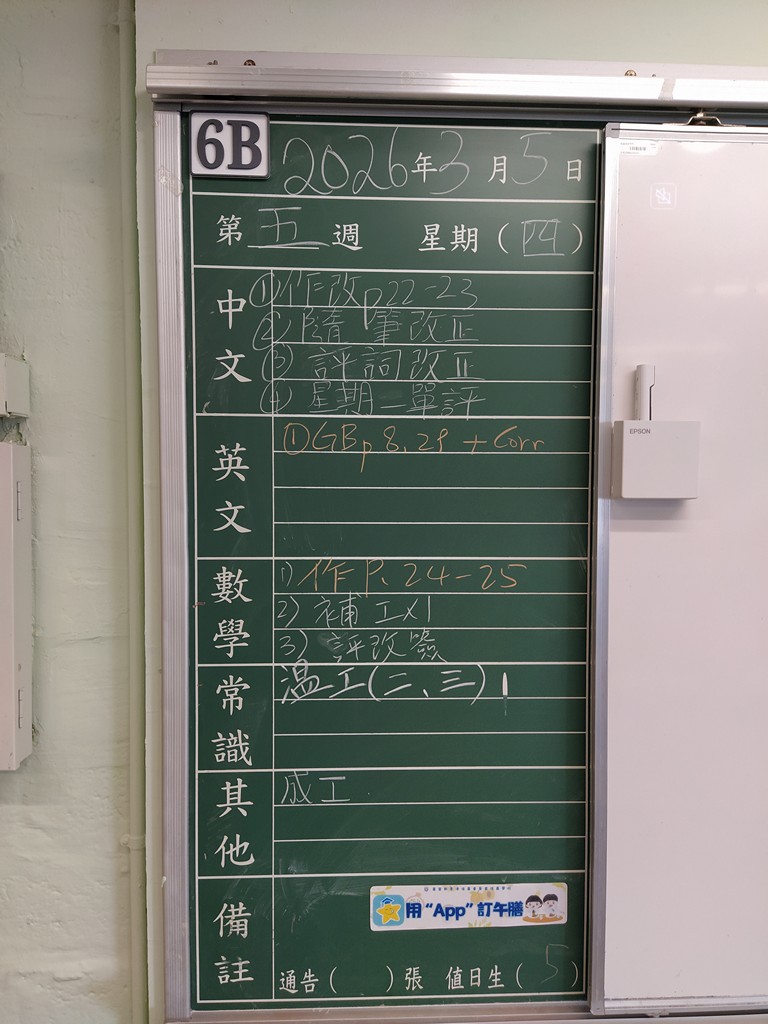 6B
2026年3月5日
第五週 星期(四)
中文
①作改p22-23
②隨筆改正
③評詞改正
④星期一單評
英文
①GBp8,29 + Corr
數學
1)作P、24-25
2)補工x1
3)評改簽
常識
溫工(二、三)
其他
成工
備註
用“App”訂午膳
通告( )張 值日生(5)
EPSON